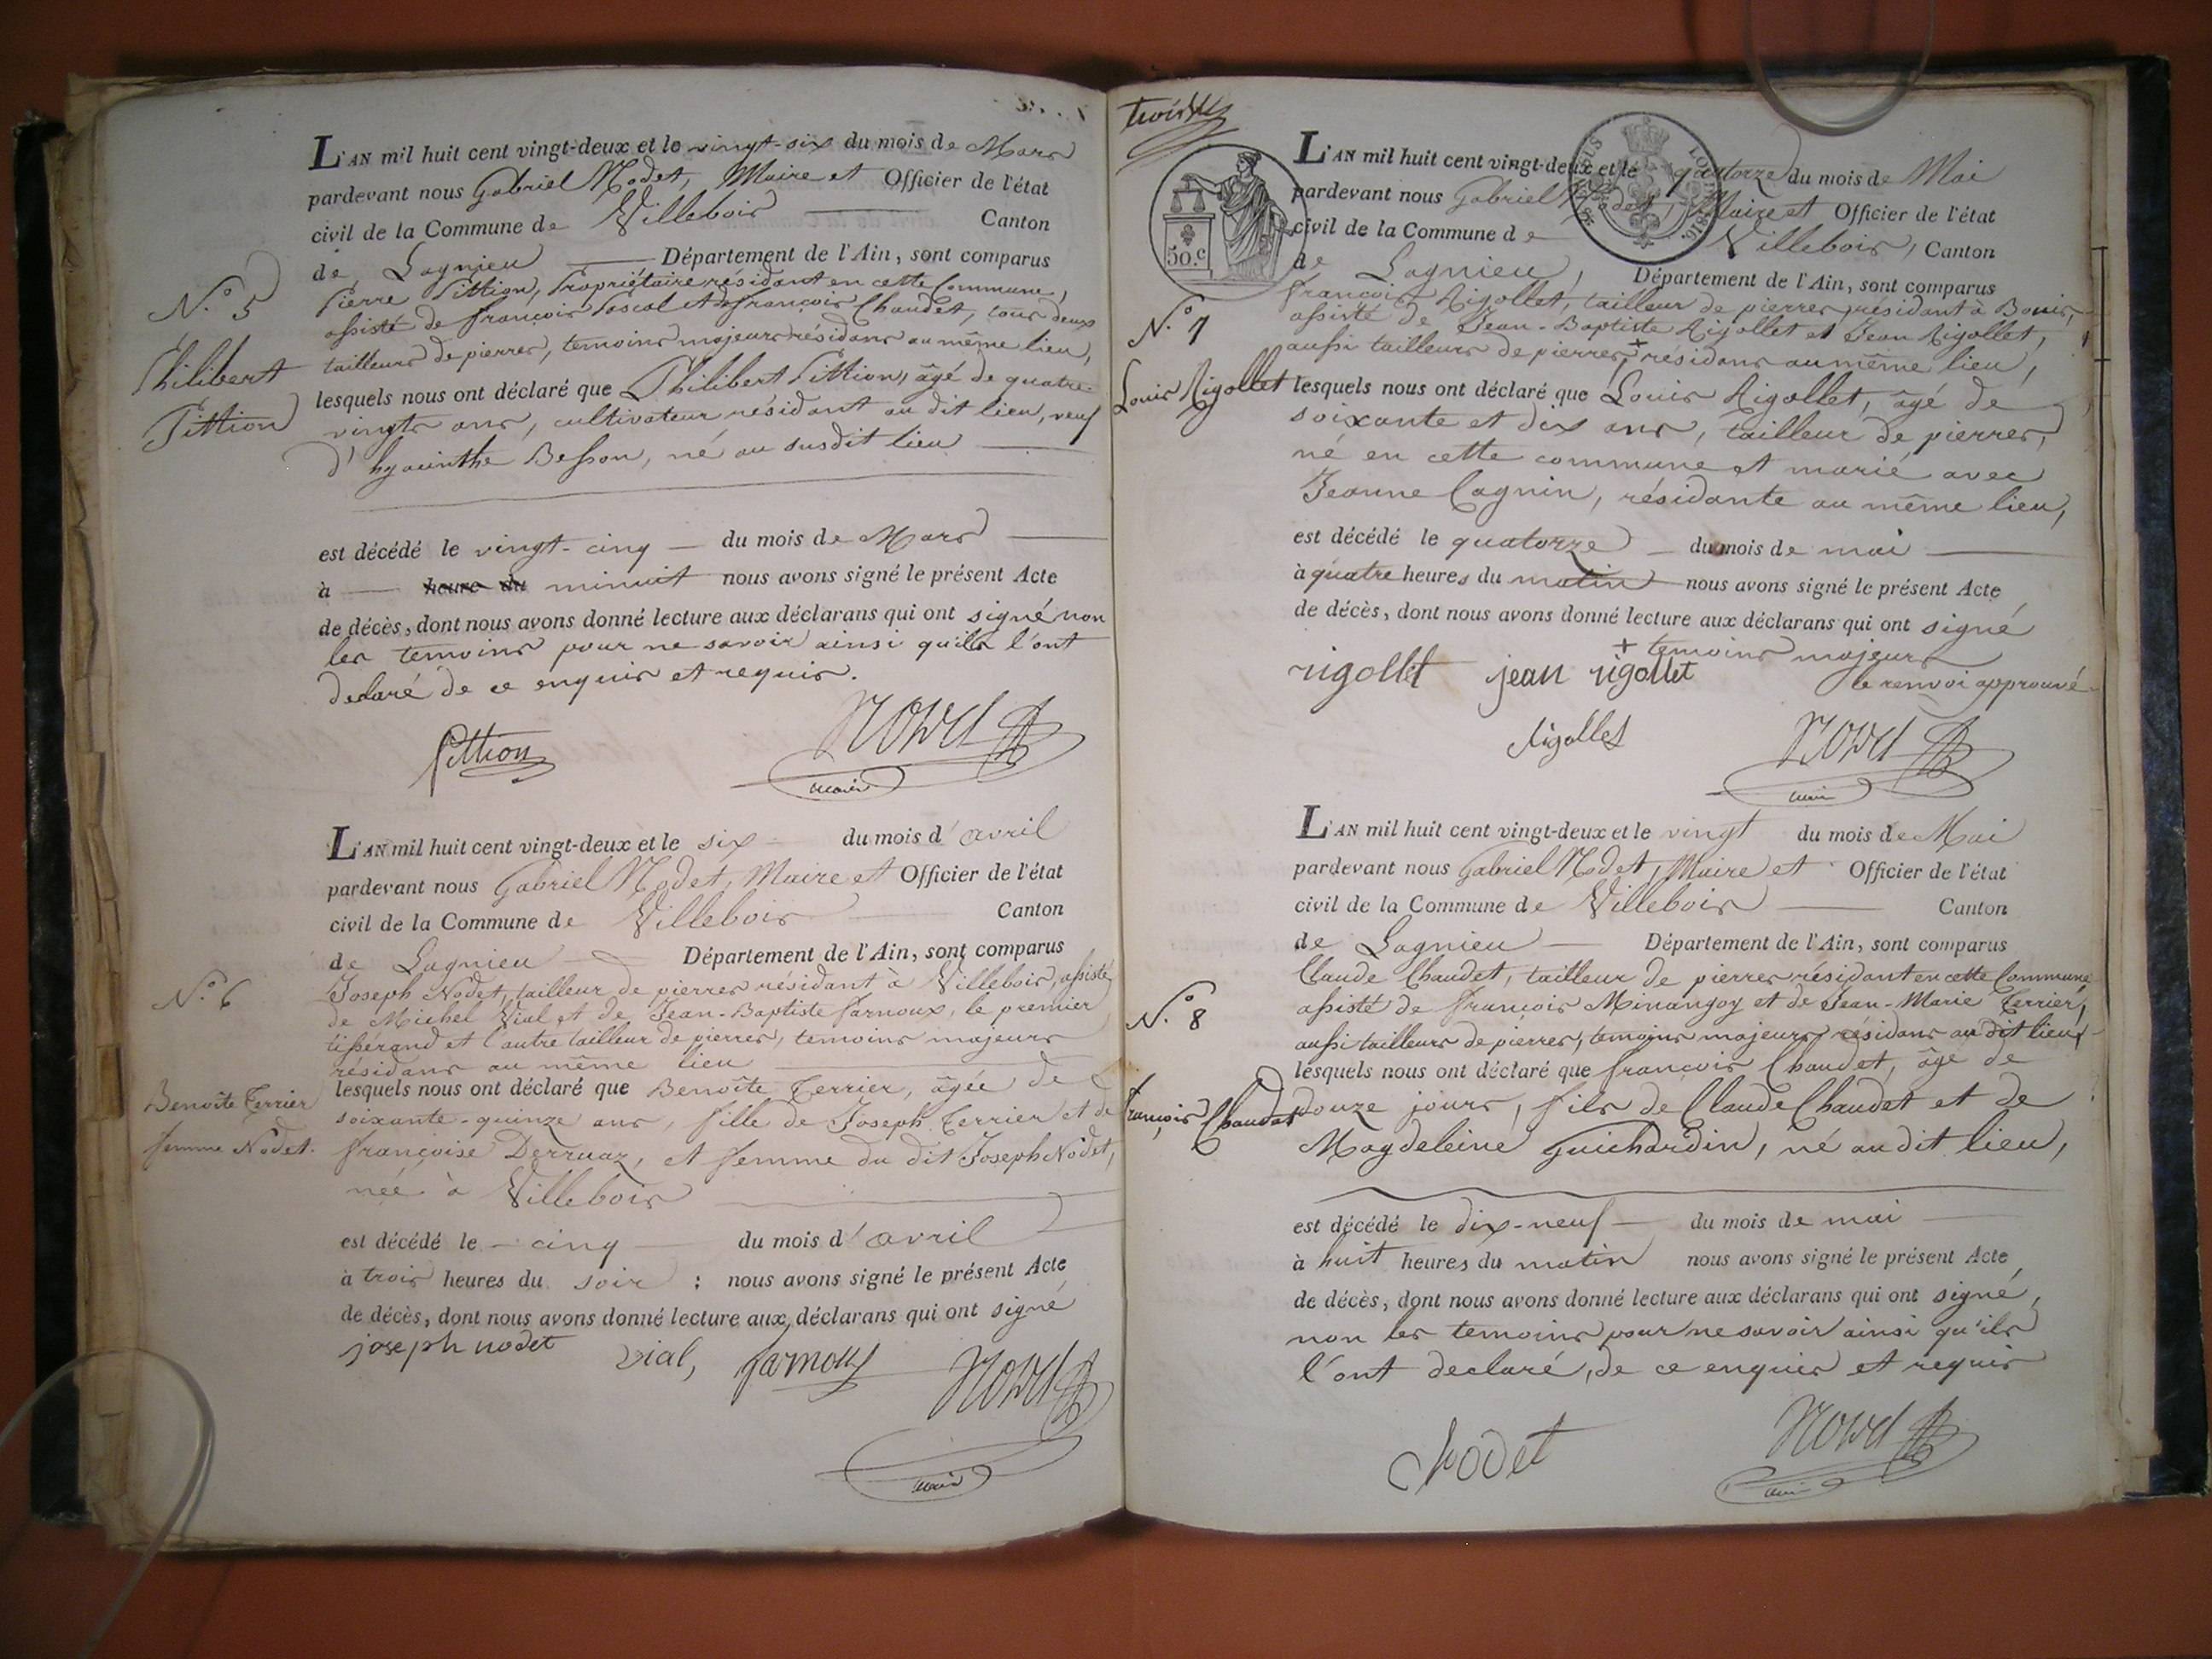 L'AN mil huit cent vingt-deux et le vingt-six du mois de Mars
pardevant nous Gabriel Nodet, Maire et Officier de l'état
civil de la Commune de Villebois Canton
de Lagnieu Département de l'Ain, sont comparus
Pierre Pittion, Propriétaire résidant en cette Commune,
assisté de françois Pascal et de françois Chaudet, tous deux
tailleurs de pierres, temoins majeurs résidans au même lieu,
lesquels nous ont déclaré que Philibert Pittion, âgé de quatre-
vingts ans, cultivateur résidant au dit lieu, veuf
d'hyacinthe Besson, né au susdit lieu
N.° 5
Philibert
Pittion
est décédé le vingt-cinq du mois de Mars
à heure du minuit nous avons signé le présent Acte
de décès, dont nous avons donné lecture aux déclarans qui ont signé non
les temoins pour ne savoir ainsi qu'ils l'ont
declaré de ce enquis et requis.
Pittion
Nodet
maire
L'AN mil huit cent vingt-deux et le six du mois d'avril
pardevant nous Gabriel Nodet, Maire et Officier de l'état
civil de la Commune de Villebois Canton
de Lagnieu Département de l'Ain, sont comparus
Joseph Nodet, tailleur de pierres résidant à Villebois, assisté
de Michel Vial et de Jean-Baptiste farnoux, le premier
tisserand et l'autre tailleur de pierres, temoins majeurs
résidans au même lieu
lesquels nous ont déclaré que Benoîte Terrier, âgée de
soixante-quinze ans, fille de Joseph Terrier et de
françoise Derruaz, et femme du dit Joseph Nodet,
née à Villebois
N.° 6
Benoîte Terrier
femme Nodet.
est décédé le cinq du mois d'avril
à trois heures du soir ; nous avons signé le présent Acte
de décès, dont nous avons donné lecture aux déclarans qui ont signé
joseph nodet vial, farnoux Nodet
maire
troisième
TIMBRE ROYAL
50.c
L'AN mil huit cent vingt-deux et le quatorze du mois de Mai
pardevant nous Gabriel Nodet, Maire et Officier de l'état
civil de la Commune de Villebois, Canton
de Lagnieu, Département de l'Ain, sont comparus
françois Rigollet, tailleur de pierres résidant à Bouis,
assisté de Jean-Baptiste Rigollet et Jean Rigollet,
aussi tailleurs de pierres, + résidans au même lieu,
lesquels nous ont déclaré que Louis Rigollet, âgé de
soixante et dix ans, tailleur de pierres,
né en cette commune et marié avec
Jeanne Cagnin, résidante au même lieu,
N.° 7
Louis Rigollet
est décédé le quatorze du mois de mai
à quatre heures du matin nous avons signé le présent Acte
de décès, dont nous avons donné lecture aux déclarans qui ont signé
+ temoins majeurs
le renvoi approuvé
rigollet jean rigollet
Rigollet
Nodet
maire
L'AN mil huit cent vingt-deux et le vingt du mois de Mai
pardevant nous Gabriel Nodet, Maire et Officier de l'état
civil de la Commune de Villebois Canton
de Lagnieu Département de l'Ain, sont comparus
Claude Chaudet, tailleur de pierres résidant en cette Commune,
assisté de françois Minangoy et de Jean-Marie Terrier,
aussi tailleurs de pierres, temoins majeurs résidans au dit lieu,
lesquels nous ont déclaré que françois Chaudet, âgé de
douze jours, fils de Claude Chaudet et de
Magdeleine Guichardin, né au dit lieu,
N.° 8
françois Chaudet
est décédé le dix-neuf du mois de mai
à huit heures du matin nous avons signé le présent Acte
de décès, dont nous avons donné lecture aux déclarans qui ont signé,
non les temoins pour ne savoir ainsi qu'ils
l'ont declaré, de ce enquis et requis
Chodet
Nodet
maire